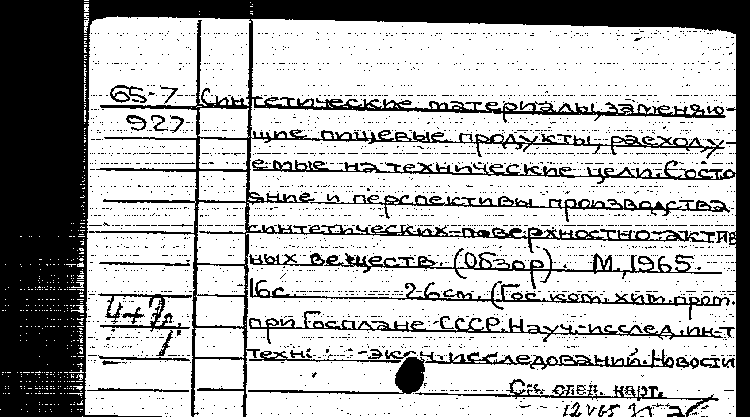 65-7 Синтетические материалы, заменяю-
927 щие пищевые продукты, расходу-
емые на технические цели. Состо
яние и перспективы производства
синтетических поверхностно-актив
ных веществ. (Обзор). М., 1965.
16с. 26см. (Гос. ком. хим. пром.
при Госплане СССР. Науч.-исслед. ин-т
техн. - экон. исследований. Новости
См. след. карт.